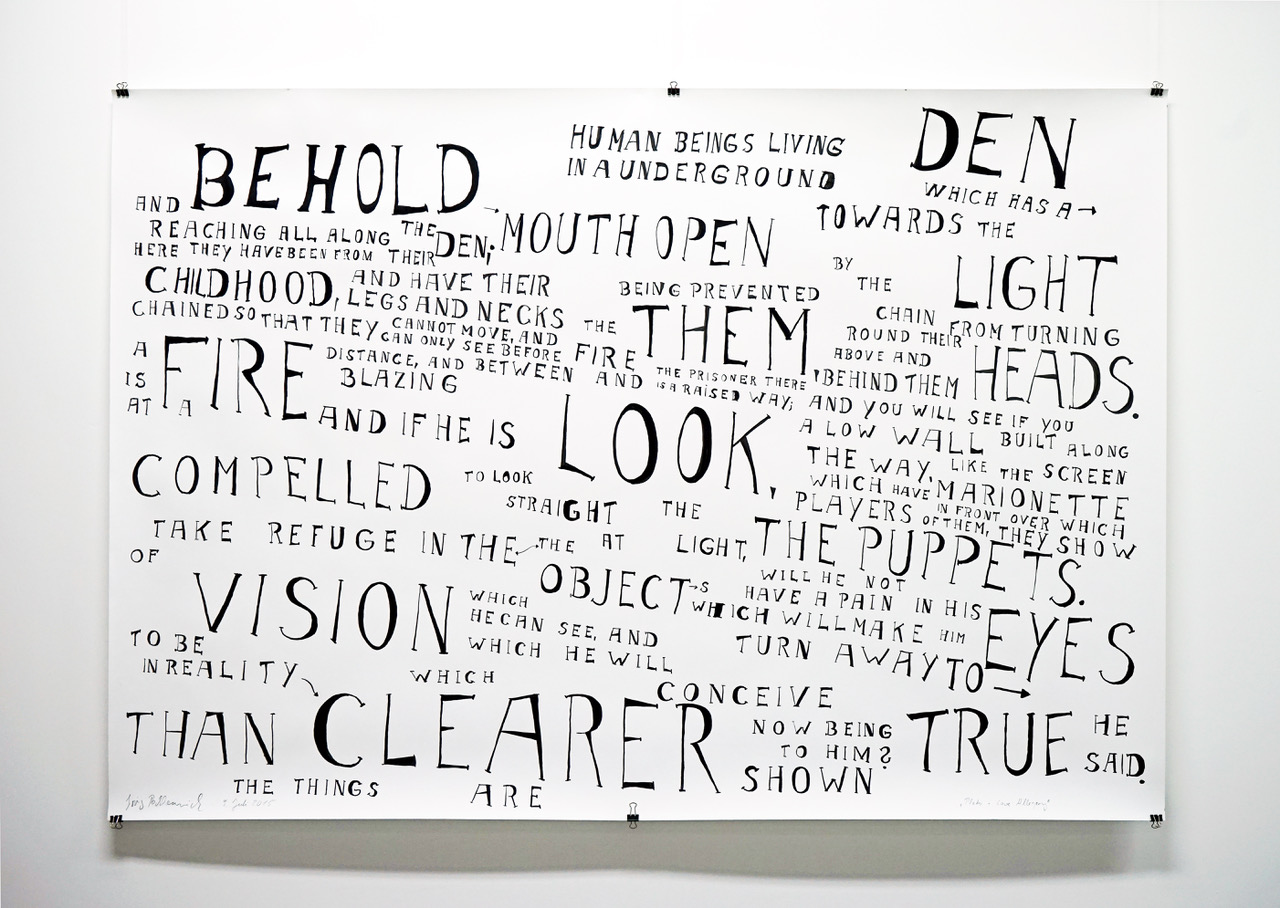 BEHOLD
HUMAN BEINGS LIVING
IN A UNDERGROUND
DEN
WHICH HAS A →
MOUTH OPEN
TOWARDS THE
LIGHT
AND
REACHING ALL ALONG THE
DEN;
HERE THEY HAVE BEEN FROM THEIR
CHILDHOOD,
AND HAVE THEIR
LEGS AND NECKS
CHAINED SO THAT THEY
CANNOT MOVE, AND
CAN ONLY SEE BEFORE
THEM,
BEING PREVENTED
BY
THE
CHAIN
FROM TURNING
ROUND THEIR
HEADS.
ABOVE AND
BEHIND THEM
A
FIRE
IS
BLAZING
AT A
DISTANCE, AND BETWEEN
THE
FIRE
AND
THE PRISONER THERE
IS A RAISED WAY;
AND YOU WILL SEE IF YOU
LOOK,
A LOW WALL BUILT ALONG
THE WAY, LIKE THE SCREEN
WHICH HAVE MARIONETTE
PLAYERS
IN FRONT OVER WHICH
OF THEM, THEY SHOW
THE PUPPETS.
AND IF HE IS
COMPELLED
TO LOOK
STRAIGHT
AT
THE
LIGHT,
WILL HE NOT
HAVE A PAIN IN HIS
EYES
WHICH WILL MAKE HIM
TURN AWAY TO →
TAKE REFUGE IN THE
THE
OBJECT → S
OF
VISION
WHICH
HE CAN SEE, AND
WHICH HE WILL
CONCEIVE
TO BE
IN REALITY
CLEARER
THAN
THE THINGS
WHICH
ARE
NOW BEING
SHOWN
TO HIM?
TRUE
HE
SAID.